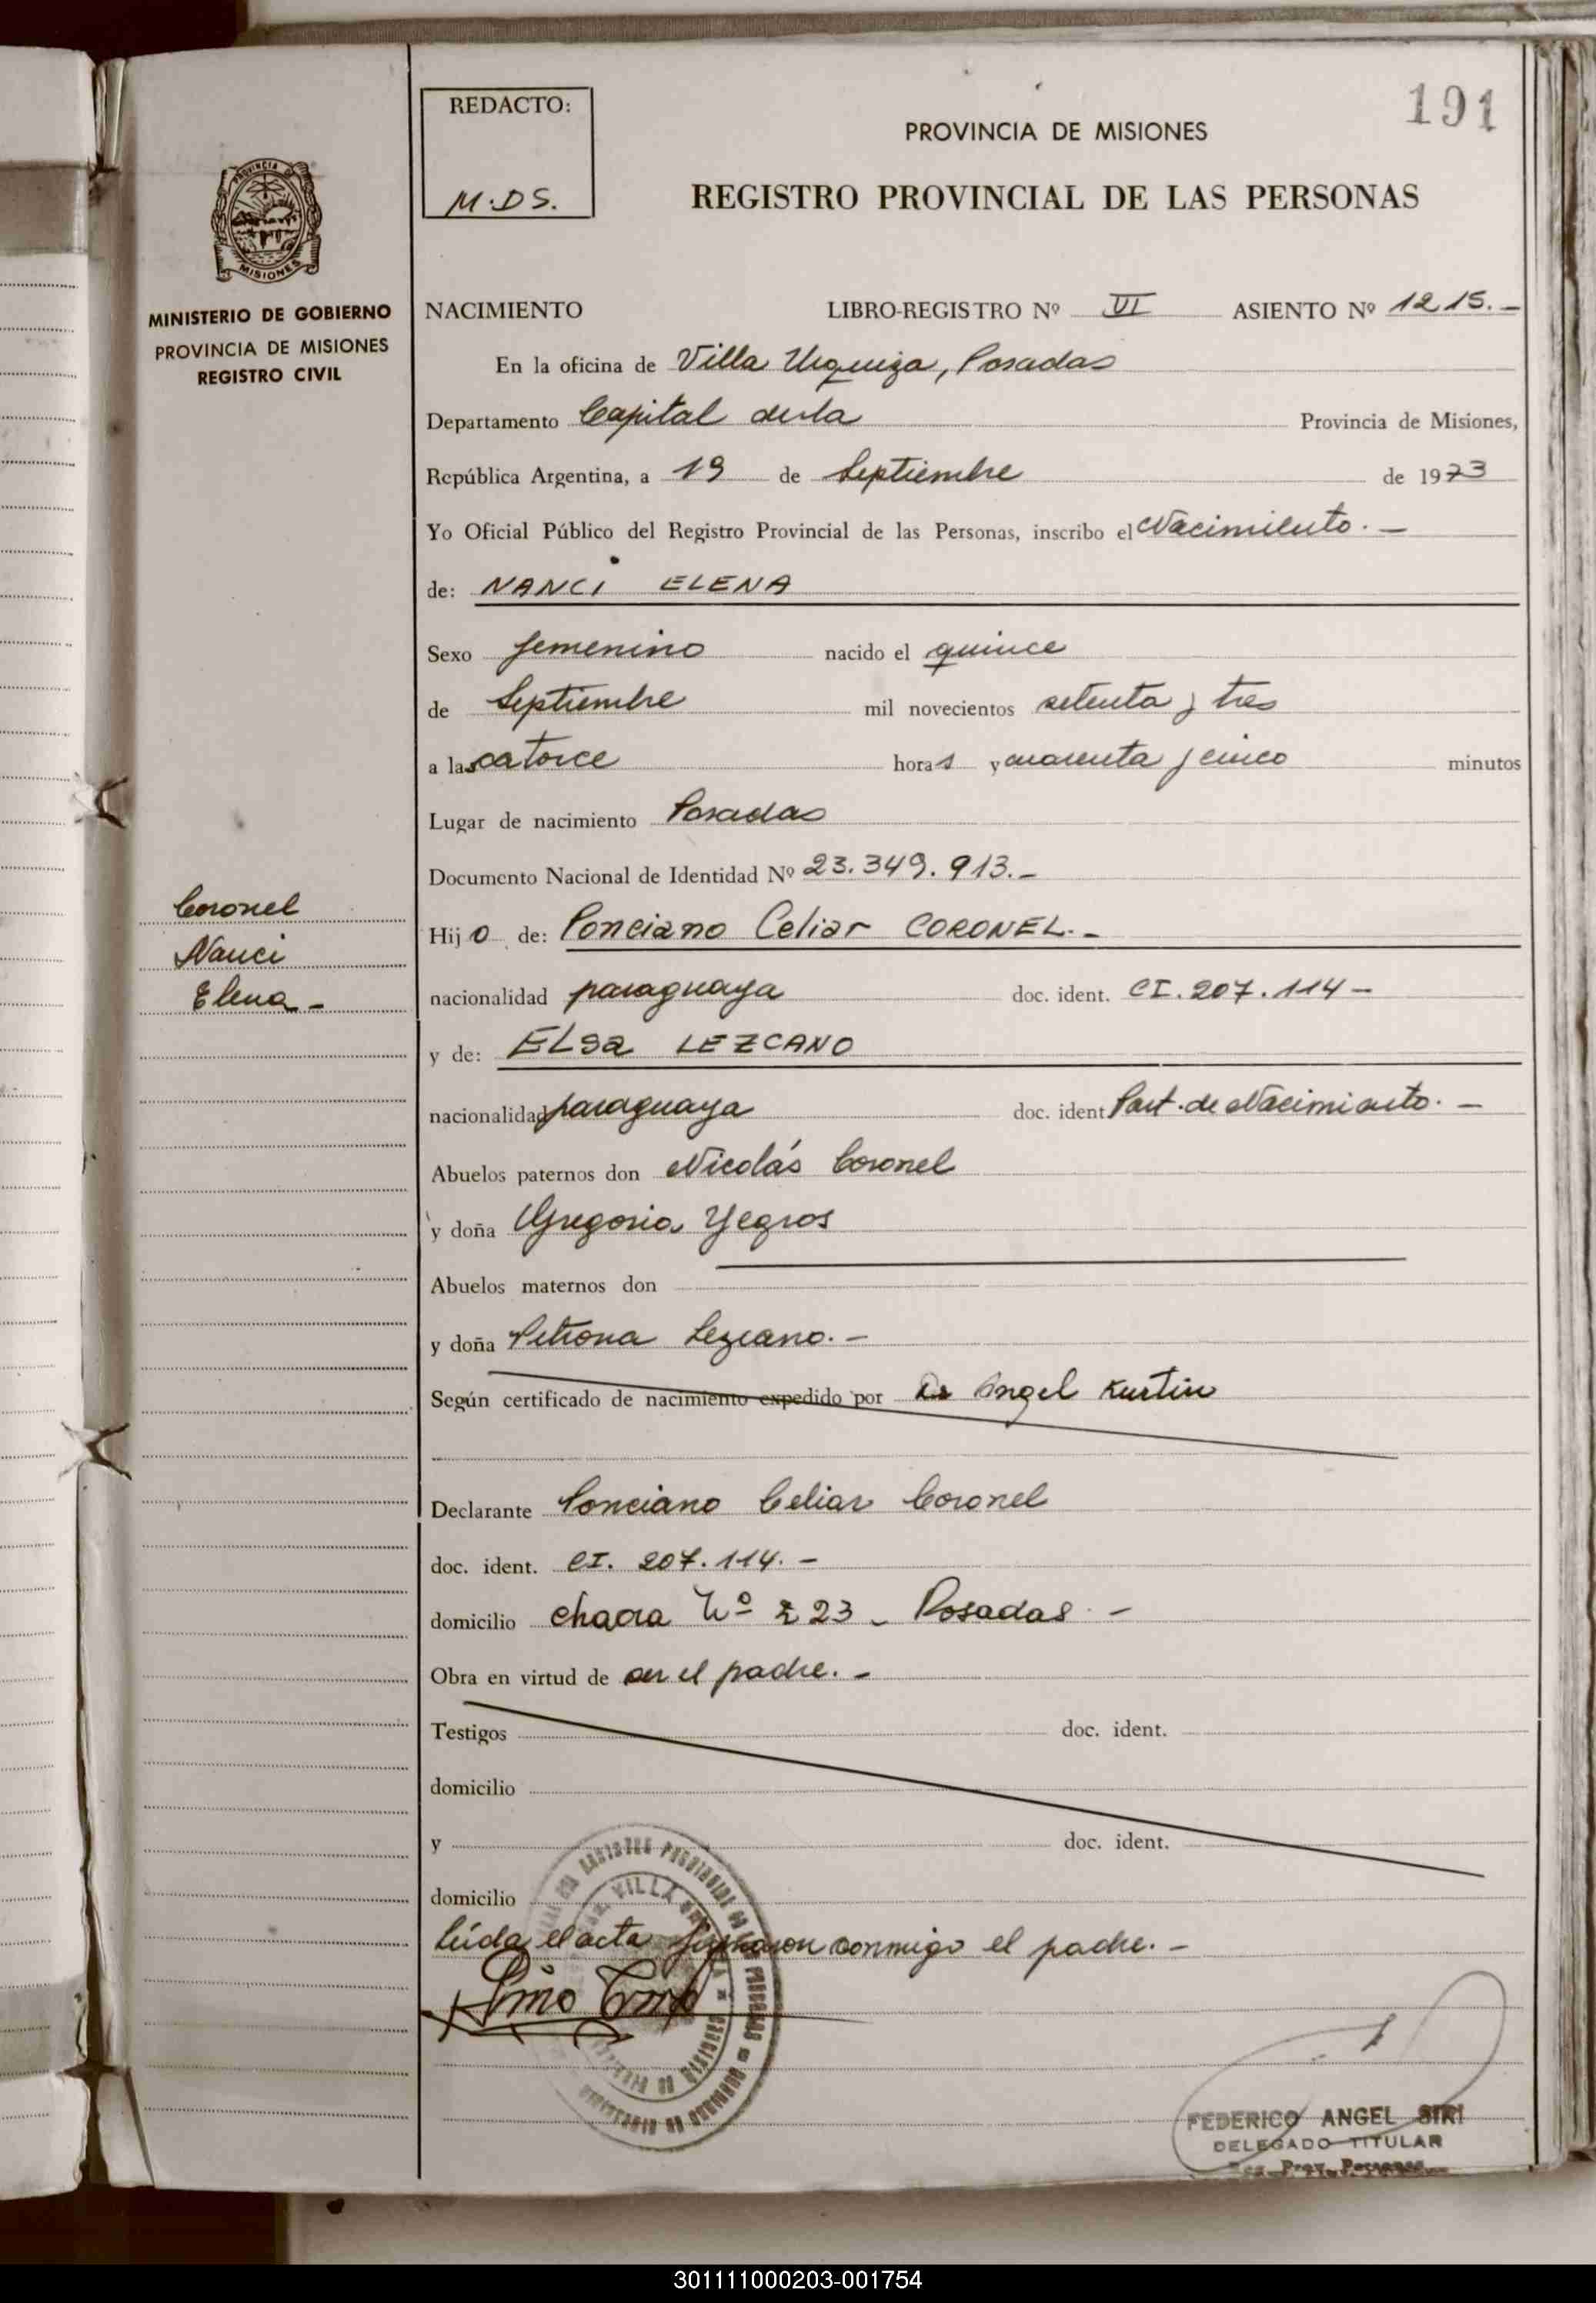 REDACTO:
M.DS.
191
PROVINCIA DE MISIONES
REGISTRO PROVINCIAL DE LAS PERSONAS
PROVINCIA DE
MISIONES
MINISTERIO DE GOBIERNO
PROVINCIA DE MISIONES
REGISTRO CIVIL
NACIMIENTO LIBRO-REGISTRO Nº VI ASIENTO Nº 1215.-
En la oficina de Villa Urquiza, Posadas
Departamento Capital de la Provincia de Misiones,
República Argentina, a 19 de Septiembre de 1973
Yo Oficial Público del Registro Provincial de las Personas, inscribo el Nacimiento.-
de: NANCI ELENA
Sexo femenino nacido el quince
de Septiembre mil novecientos setenta y tres
a las catorce horas y cuarenta y cinco minutos
Lugar de nacimiento Posadas
Documento Nacional de Identidad Nº 23.349.913.-
Coronel
Nanci
Elena-
Hijo de: Ponciano Celiar CORONEL.-
nacionalidad paraguaya doc. ident. CI.207.114-
y de: ELsa LEZCANO
nacionalidad paraguaya doc. ident Part. de Nacimiento.-
Abuelos paternos don Nicolás Coronel
y doña Gregoria Yegros
Abuelos maternos don
y doña Petrona Lezcano.-
Según certificado de nacimiento expedido por Dr Angel Kurtin
Declarante Ponciano Celiar Coronel
doc. ident. CI. 207.114.-
domicilio chacra Nº 223 - Posadas.-
Obra en virtud de ser el padre.-
Testigos doc. ident.
domicilio
y doc. ident.
domicilio
Leída el acta firmaron conmigo el padre.-
VILLA
FEDERICO ANGEL SIRI
DELEGADO TITULAR
Reg. Prov. Personas
301111000203-001754